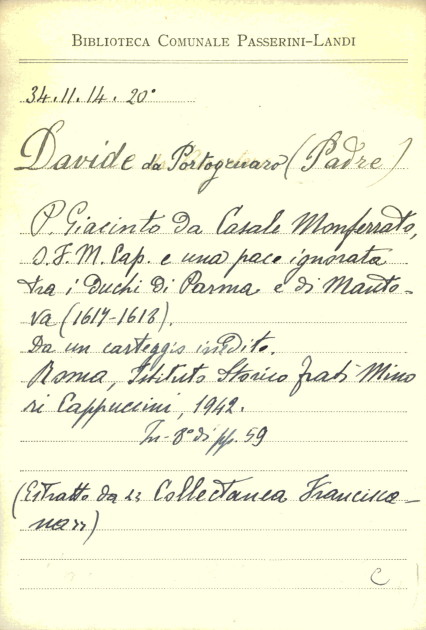 BIBLIOTECA COMUNALE PASSERINI-LANDI
34.11.14. 20°
Davide da Portogruaro (Padre)
P. Giacinto da Casale Monferrato,
O.F.M. Cap. e una pace ignorata
tra i duchi di Parma e di Manto-
va (1617-1618).
Da un carteggio inedito.
Roma, Istituto Storico frati Mino
ri Cappuccini, 1942.
In-8° di pp. 59
(Estratto da "Collectanea Francisca-
na")
C